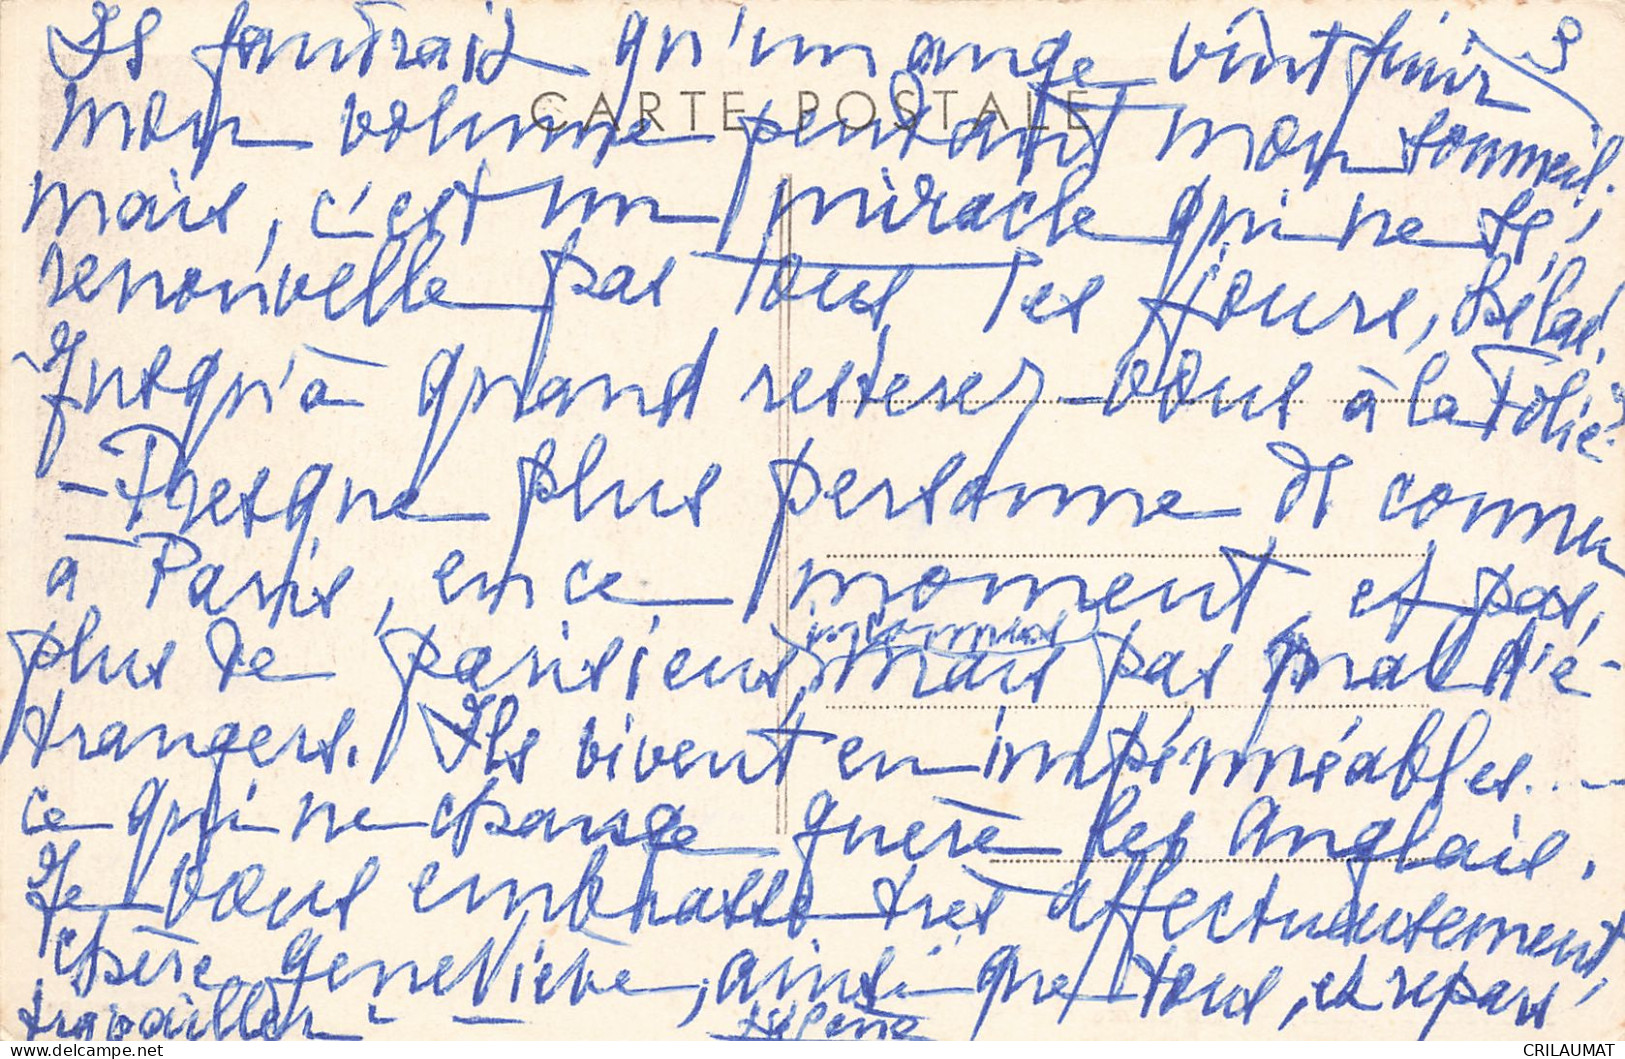 Il faudrait qu'un ange vînt finir
CARTE POSTALE
mon volume pendant mon sommeil,
mais, c'est un miracle qui ne se
renouvelle pas tous les jours, hélas.
Jusqu'à quand resterez-vous à la Folie?
- Presque plus personne de connu
à Paris, en ce moment, et pas
plus de parisiens, mais pas mal d'é-
trangers. Ils vivent en imperméables...
ce qui ne change guère les Anglais.
Je vous embrasse très affectueusement,
chère Geneviève, ainsi que tous, et repars
travailler -
Hélène
CRILAUMAT